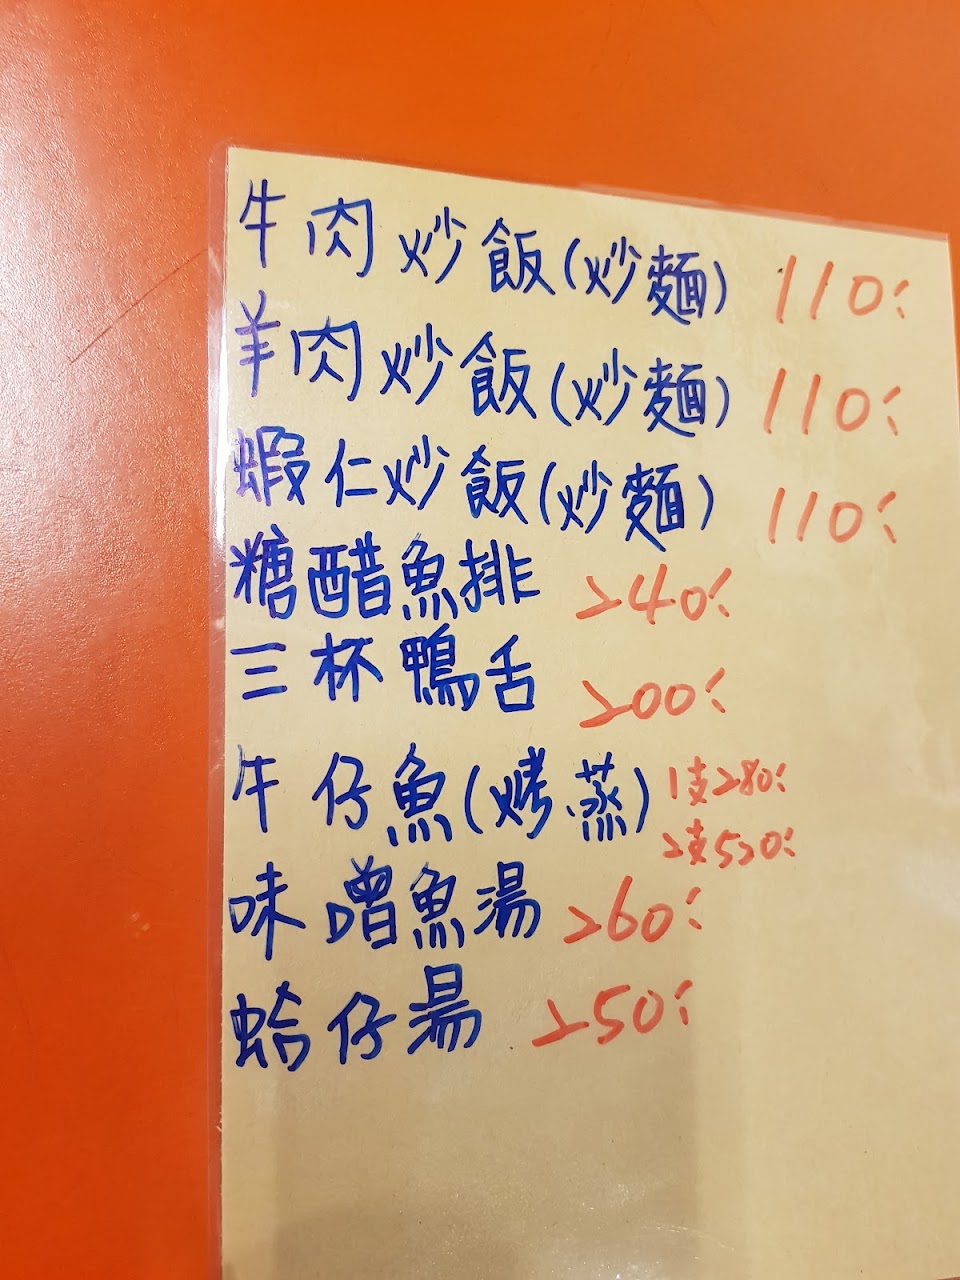 牛肉炒飯(炒麵) 110:
羊肉炒飯(炒麵) 110:
蝦仁炒飯(炒麵) 110:
糖醋魚排 240:
三杯鴨舌 200:
牛仔魚(烤.蒸) 1支280:
2支520:
味噌魚湯 260:
蛤仔湯 250: